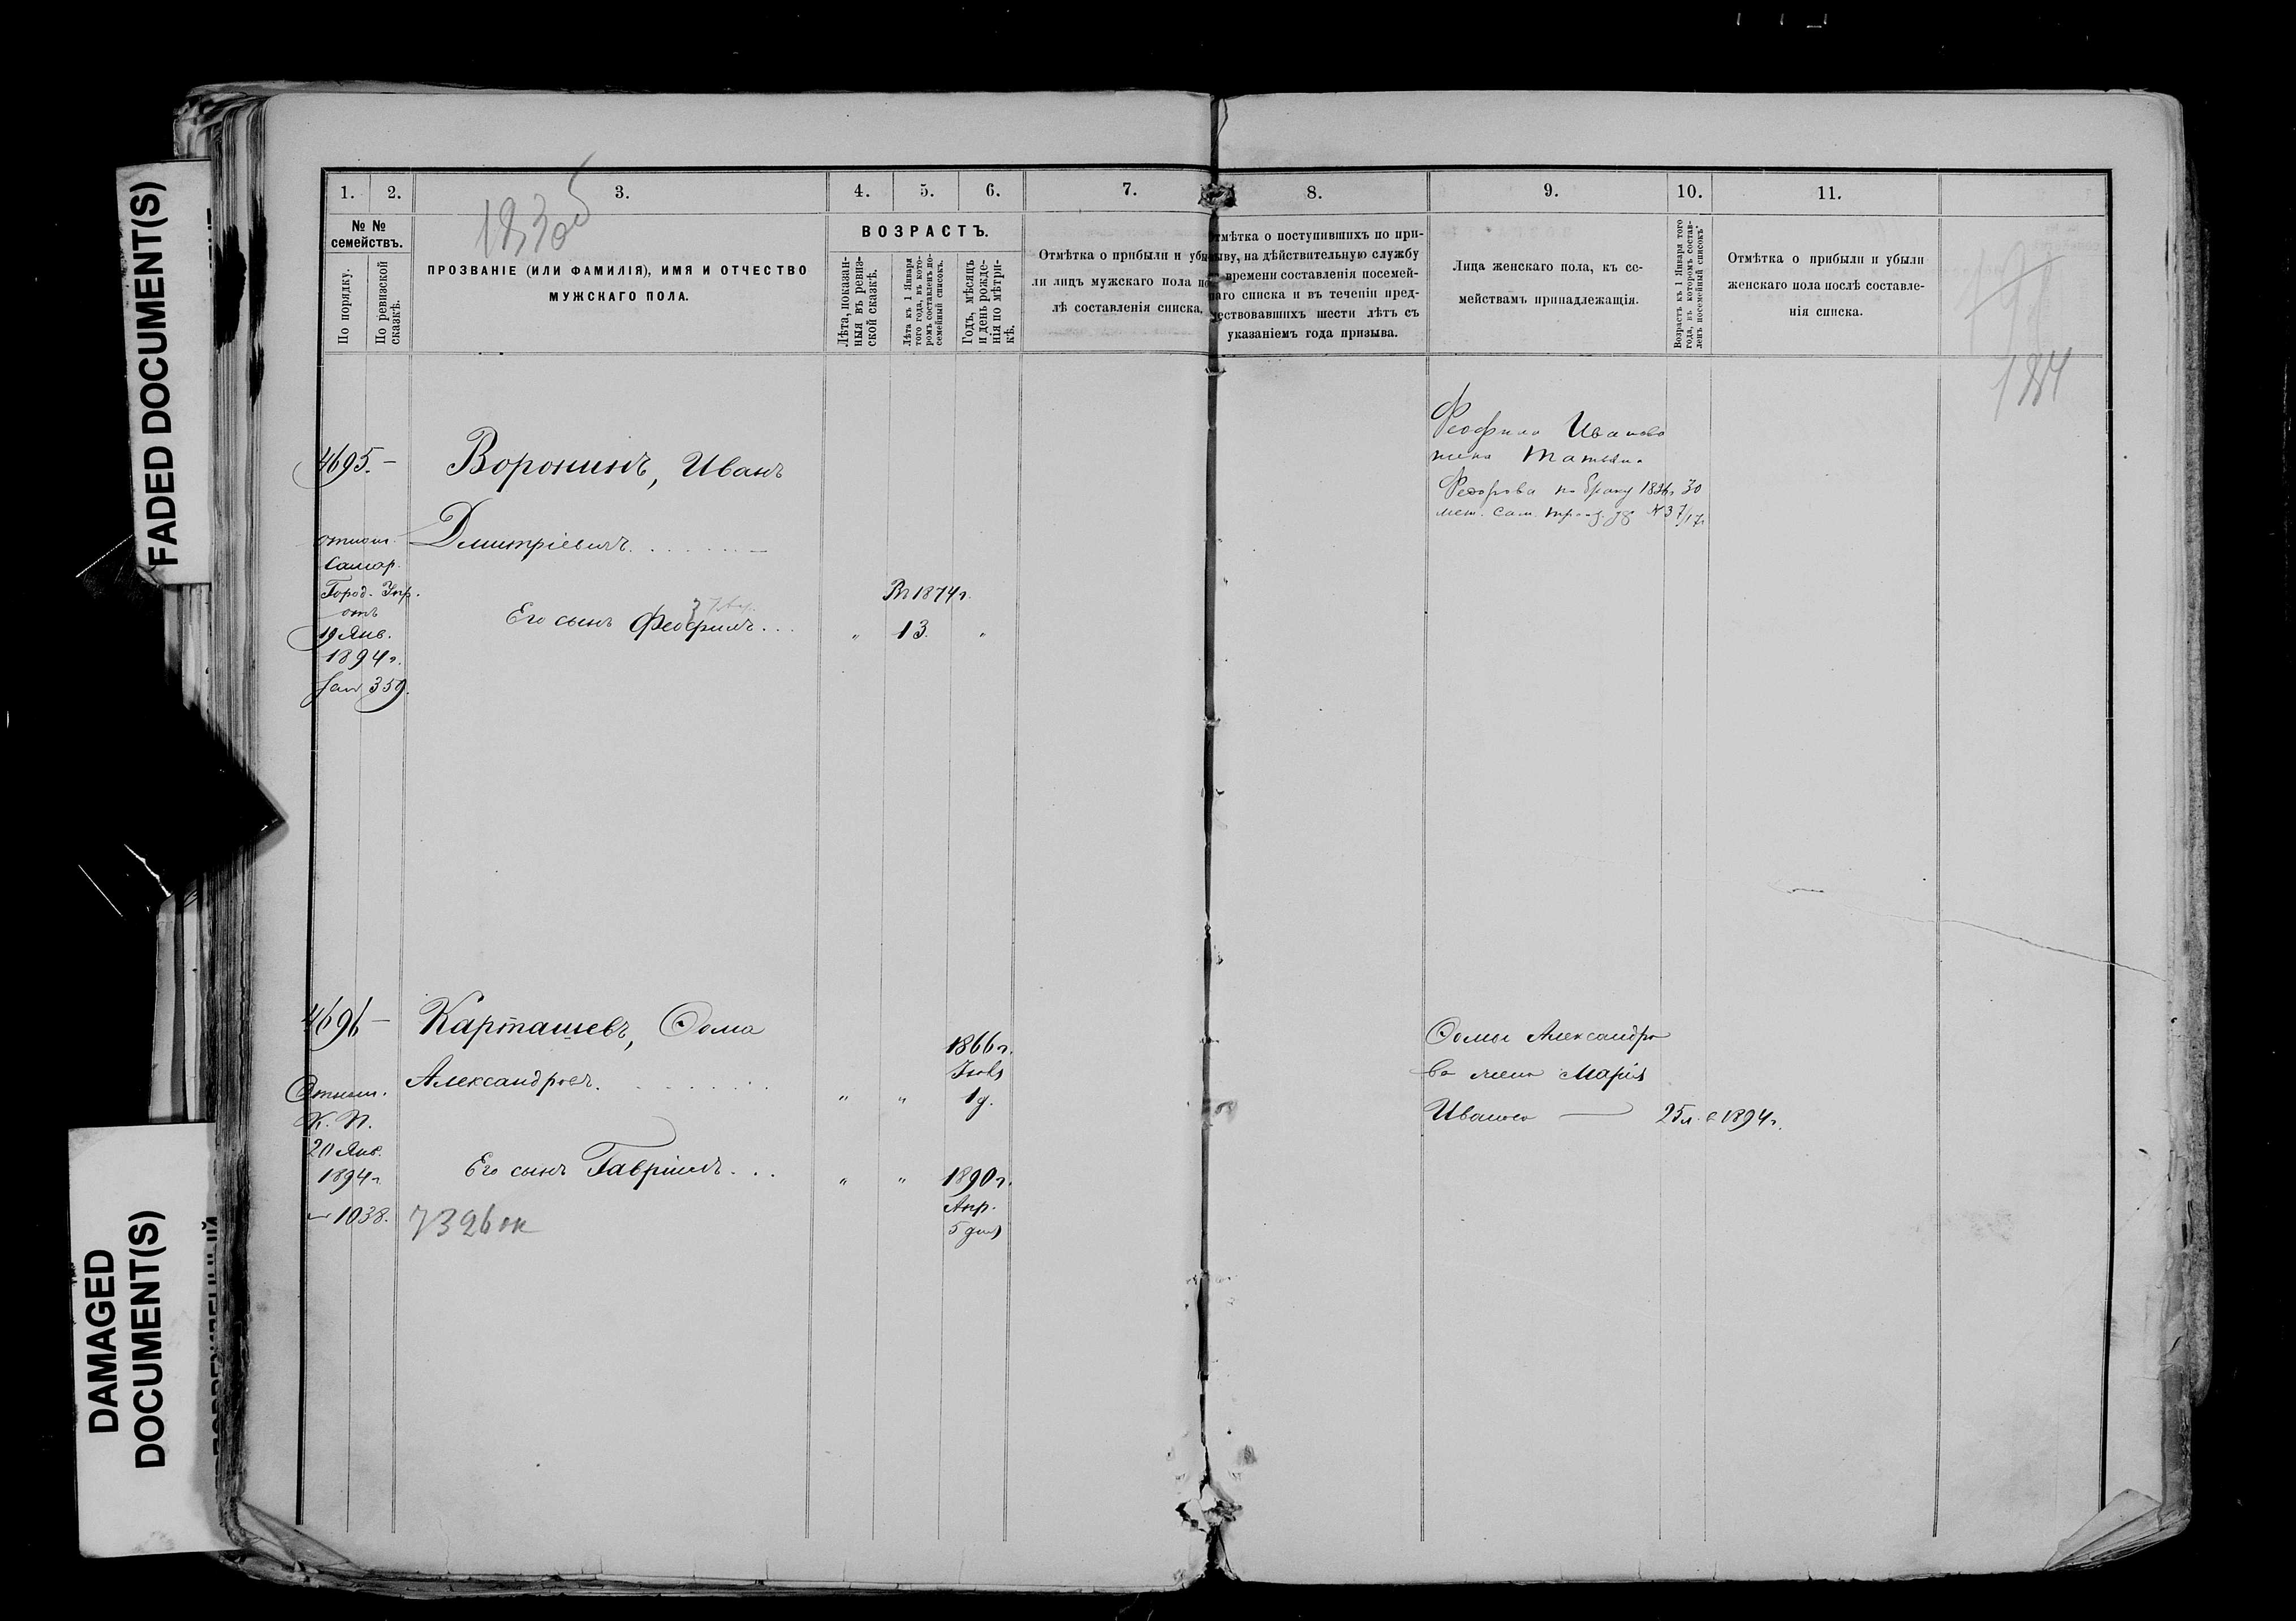 FADED DOCUMENT(S)
DAMAGED
DOCUMENT(S)
183об
1. 2. 3. 4. 5. 6. 7. 8. 9. 10. 11.
№ №
семействъ.
По порядку.
По ревизской
сказкѣ.
ПРОЗВАНІЕ (ИЛИ ФАМИЛІЯ), ИМЯ И ОТЧЕСТВО
МУЖСКАГО ПОЛА.
ВОЗРАСТЪ.
Лѣта, показан-
ныя въ ревиз-
ской сказкѣ.
Лѣта къ 1 Января
того года, въ кото-
ромъ составленъ по-
семейный списокъ.
Годъ, мѣсяцъ
и день рожде-
нія по метри-
кѣ.
Отмѣтка о прибыли и убы
ли лицъ мужскаго пола по
лѣ составленія списка.
тмѣтка о поступившихъ по при-
ыву, на дѣйствительную службу
времени составленія посемей-
наго списка и въ теченіи пред-
ествовавшихъ шести лѣтъ съ
указаніемъ года призыва.
Лица женскаго пола, къ се-
мействамъ принадлежащія.
Возрастъ къ 1 Января того
года, въ которомъ состав-
ленъ посемейный списокъ
Отмѣтка о прибыли и убыли
женскаго пола послѣ составле-
нія списка.
184
4695. –
Воронинъ, Иванъ
Дмитріевичъ
Его сынъ Феофилъ
" 13. "
1874г.
отнош.
Самар.
Город. Упр.
отъ
19 Янв.
1894г.
359.
Феофила Иванова
жена Татьяна
Федорова по браку 30
4696 –
Карташевъ, Ѳома
Александровъ
" "
1866г.
1д.
Отнош.
К. П.
20 Янв.
1894г.
1038.
Его сынъ Гавріилъ
" "
1890г.
Апр.
5 дня
7326
Ѳомы Александро
ва жена Марія
Иванова — 25л. в 1894г.